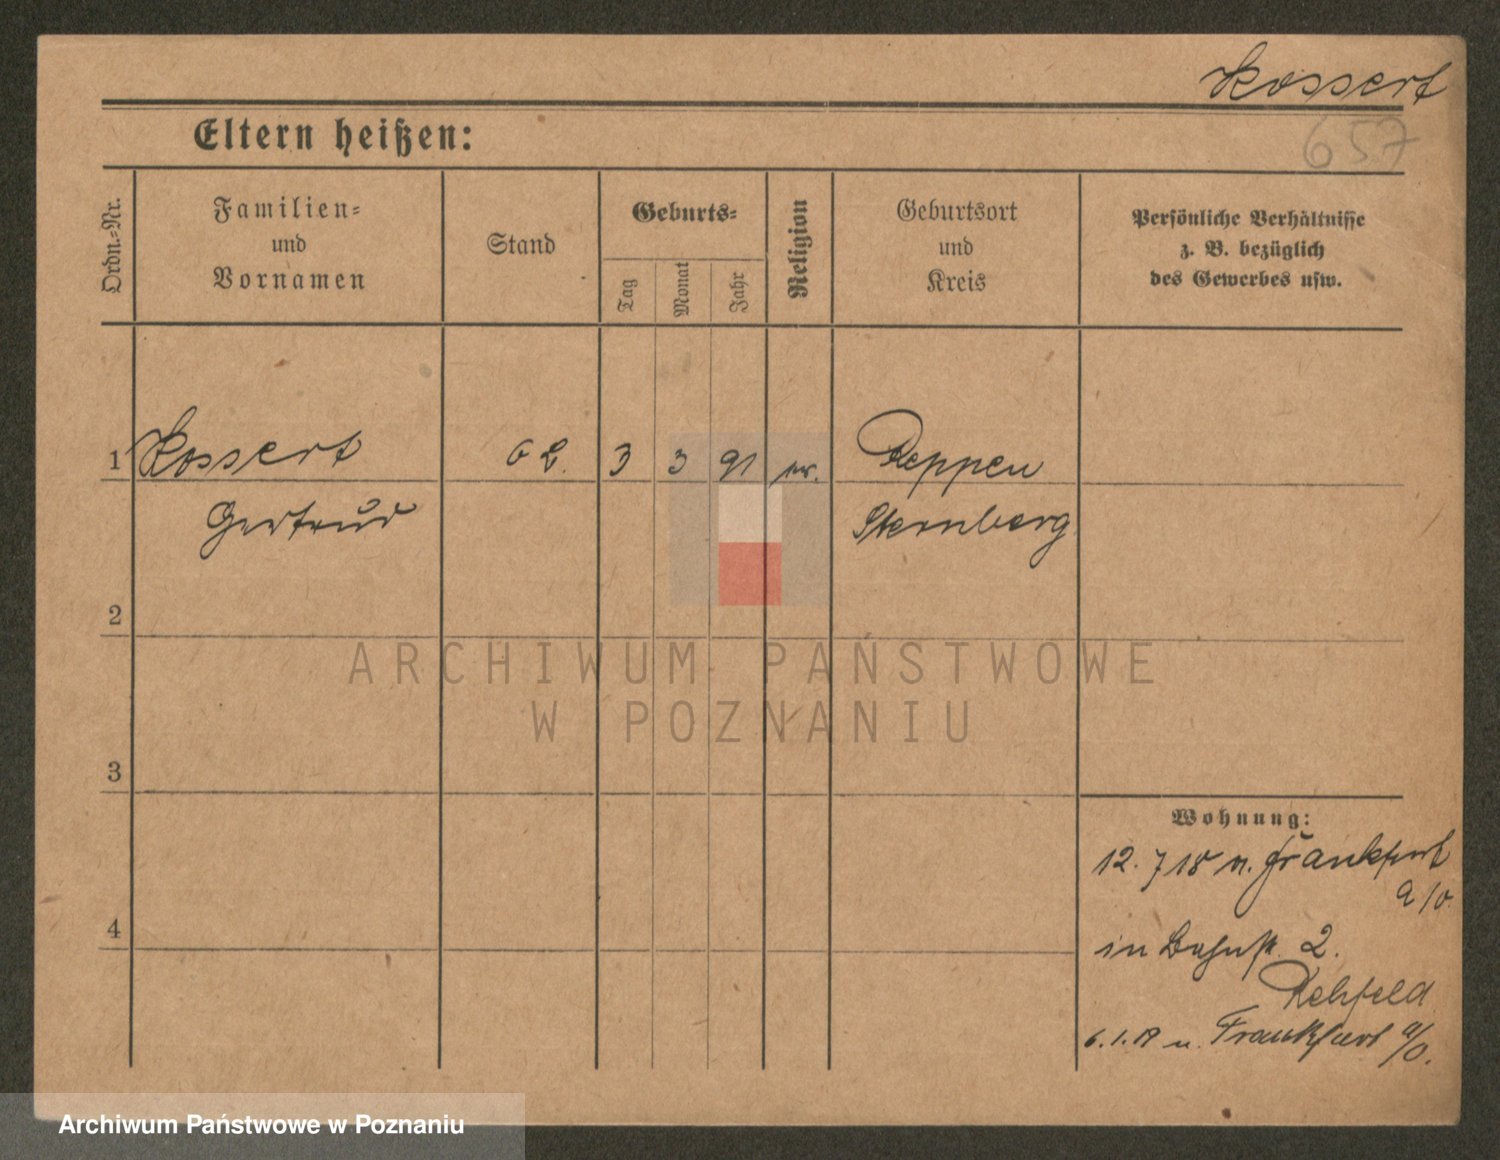 Kossert
657
Eltern heißen:
Ordn.-Nr.
Familien-
und
Vornamen
Stand
Geburts-
Tag
Monat
Jahr
Religion
Geburtsort
und
Kreis
Persönliche Verhältnisse
z. B. bezüglich
des Gewerbes usw.
1 Kossert 3 3 91 ev. Reppen
Gertrud Sternberg
2
ARCHIWUM PAŃSTWOWE
W POZNANIU
3
Wohnung:
12. 7 18 n. Frankfurt
a/O.
in Bahnst. 2.
Rehfeld
4
6. 1. 19 n. Frankfurt a/O.
Archiwum Państwowe w Poznaniu